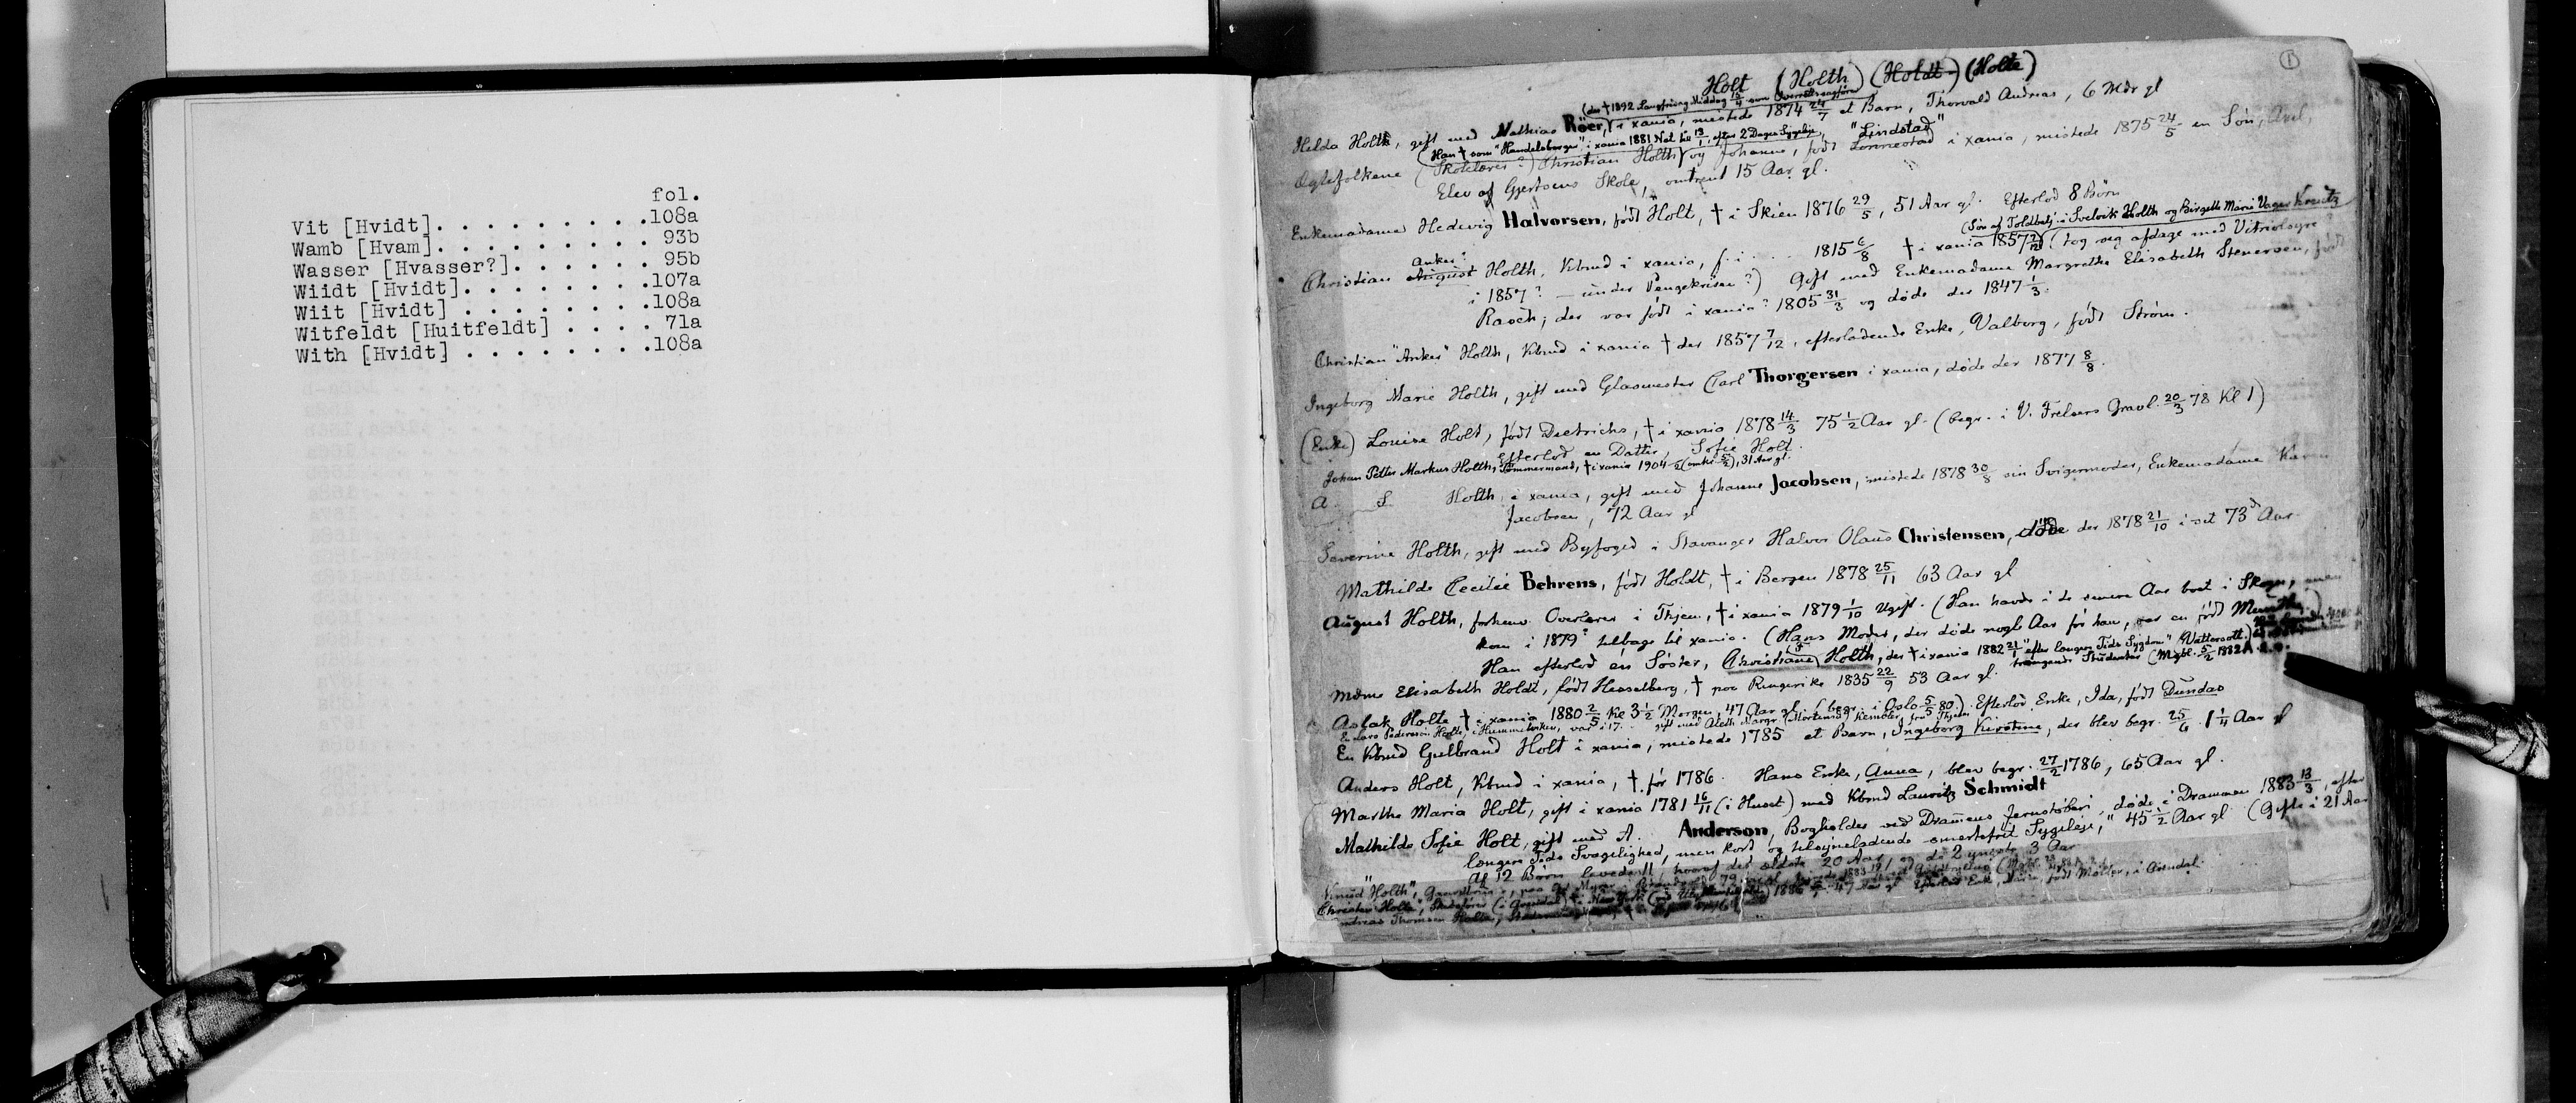 fol.
Vit [Hvidt]. . . . . . . . . .108a
Wamb [Hvam]. . . . . . . . . 93b
Wasser [Hvasser?]. . . . . . 95b
Wiidt [Hvidt]. . . . . . . . .107a
Wiit [Hvidt] . . . . . . . . .108a
Witfeldt [Huitfeldt] . . . . 71a
With [Hvidt] . . . . . . . . .108a
1
Holt (Holth) (Holdt) (Holte)
(der † 1892 Langfredag Middag 15/4 som Overretssagfører)
Hilda Holth, gift med Mathias Röer, i xania, mistede 1874 24/7 et Barn, Thorvald Andreas, 6 Mdr gl
(Han † som "Handelsborger" i xania 1881 Nat til 13/1, efter 2 Dages Sygeleje, "Lindstad"
Ægtefolkene (Skolelærer?) Christian Holth) og Johanne, født Lonnestad i xania, mistede 1875 24/5 en Søn, Axel,
Elev af Gjertsens Skole, omtrent 15 Aar gl.
Enkemadame Hedevig Halvorsen, født Holt, † i Skien 1876 29/5, 51 Aar gl. Efterlod 8 Børn
(Søn af Toldbetj. i Svelvik Holth og Birgitte Marie Unger Kreutz
Anker?
Christian August Holth, Kbmd i xania, f. i . . . 1815 6/8 † i xania 1857 7/12 (tog sig afdage med Vitriolsyre
i 1857? — under Pengekrisen?) Gift med Enkemadame Margrethe Elisabeth Stenersen, født
Rasch, der var født i xania? 1805 31/3 og døde der 1847 1/3.
Christian "Anker" Holth, Kbmd i xania † der 1857 7/12, efterladende Enke, Valborg, født Strøm.
Ingeborg Marie Holth, gift med Glasmester Carl Thorgersen i xania, døde der 1877 8/8.
(Enke) Louise Holt, født Dietrichs, † i xania 1878 14/3 75 1/2 Aar gl. (begr. i V. Frelsers Gravl. 20/3 78 Kl 1)
Efterlod en Datter, Sofie Holt.
Johan Petter Markus Holth, Tømmermand, † i xania 1904 (omkr. 5/2), 31 Aar gl.
A. S. Holth i xania, gift med Johanne Jacobsen, mistede 1878 30/8 sin Svigermoder, Enkemadame Karen
Jacobsen, 72 Aar gl
Severine Holth, gift med Byfoged i Stavanger Halvor Olaus Christensen, döde der 1878 21/10 i sit 73de Aar.
Mathilde Cecilie Behrens, født Holdt, † i Bergen 1878 25/11 63 Aar gl
August Holth, forhenv. Overlærer i Thjem, † i xania 1879 1/10 Ugift. (Han havde i de senere Aar boet i Skogn, men
kom i 1879? tilbage til xania. (Hans Moder, der døde nogle Aar før han, var en født Munthe)
Han efterlod en Søster, Christiane Holth, der † i xania 1882 21/1 "efter længere Tids Sygdom" (Vattersott.)
trængende Studenter (Mgbl. 5/2 1882 A.
Mdme Elisabeth Holdt, født Hesselberg, † paa Ringerike 1835 22/9 53 Aar gl.
Aslak Holte † i xania 1880 2/5 Kl 3 1/2 Morgen, 47 Aar gl. (begr. i Oslo 5/5 80). Efterlod Enke, Ida, født Dundas
En Lars Pedersøn Holte, i Hummelviken, var i 17.. gift med Aleth Margr. (Mortensd.) Kembler, fra Thjem
En Kbmd Gulbrand Holt i xania, mistede 1785 et Barn, Ingeborg Kirstine, der blev begr. 25/6 1 1/4 Aar gl
Anders Holt, Kbmd i xania, † før 1786. Hans Enke, Anna, blev begr. 27/2 1786, 65 Aar gl.
Marthe Maria Holt, gift i xania 1781 16/11 (i Huset) med Kbmd Lauritz Schmidt
Mathilde Sofie Holt, gift med A. Anderson, Bogholder ved Dramens Jernstøberi, døde i Drammen 1883 13/3, efter
længere Tids Svagelighed, men kort og tilsyneladende smertefrit Sygeleje," 45 1/2 Aar gl (Gifte i 21 Aar
Af 12 Børn levede 11, hvoraf det ældste 20 Aar, og de 2 yngste 3 Aar
Knud "Holth",
Christen "Holte", Skibsfører (i Arendal) † i New York 1886 47 Aar gl Efterlod Enke, Maria, født Møller, i Arendal.
Andreas Thomsen Holte,